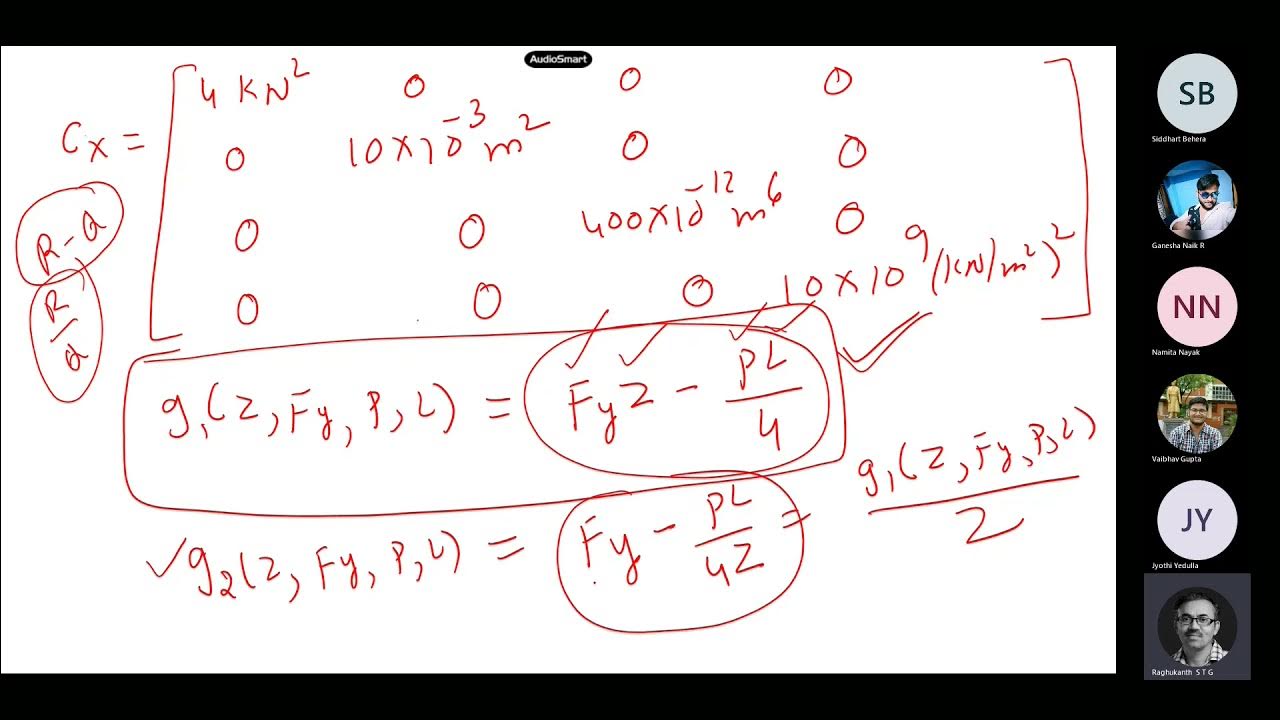 AudioSmart
4 KN² 0 0 0
C_X = 0 10×10⁻³ m² 0 0
0 0 400×10⁻¹² m⁶ 0
0 0 0 10×10⁹ (KN/m²)²
R-Q,
R/Q
g₁(Z, Fy, P, L) = FyZ - PL/4
g₂(Z, Fy, P, L) = Fy - PL/4Z = g₁(Z, Fy, P, L)/Z
SB
Siddhart Behera
Ganesha Naik R
NN
Namita Nayak
Vaibhav Gupta
JY
Jyothi Yedulla
Raghukanth S T G